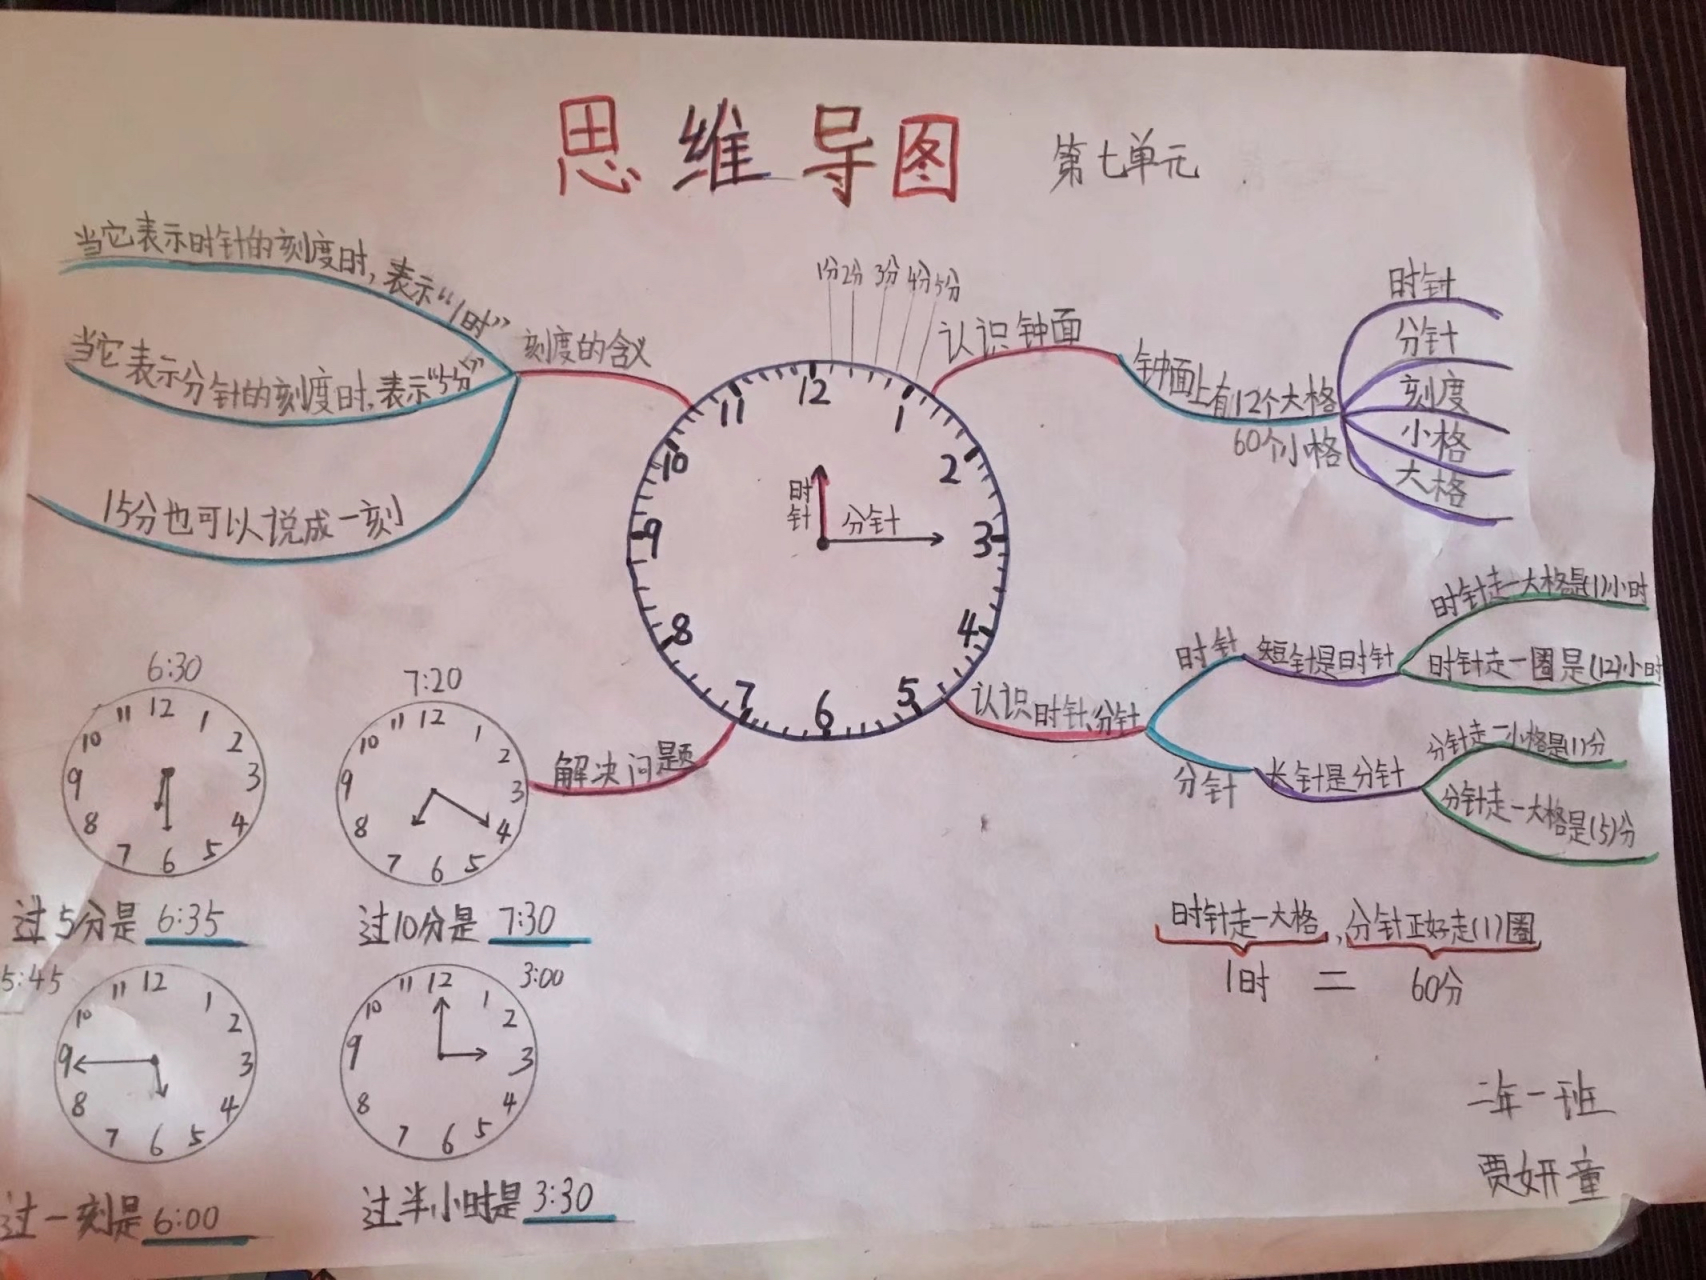 思维导图
第七单元
当它表示时针的刻度时,表示“1时”
当它表示分针的刻度时,表示“5分”
15分也可以说成一刻
刻度的含义
1分 2分 3分 4分 5分
认识钟面
钟面上有12个大格
60个小格
时针
分针
刻度
小格
大格
12
1
2
3
4
5
6
7
8
9
10
11
时针
分针
认识时针、分针
时针
短针是时针
时针走一大格是(1)小时
时针走一圈是(12)小时
分针
长针是分针
分针走一小格是(1)分
分针走一大格是(5)分
解决问题
6:30
12
1
2
3
4
5
6
7
8
9
10
11
过5分是 6:35
7:20
12
1
2
3
4
5
6
7
8
9
10
11
过10分是 7:30
5:45
12
1
2
3
4
5
6
7
8
9
10
11
过一刻是 6:00
3:00
12
1
2
3
4
5
6
7
8
9
10
11
过半小时是 3:30
时针走一大格,分针正好走(1)圈
1时 = 60分
二年一班
贾妍童